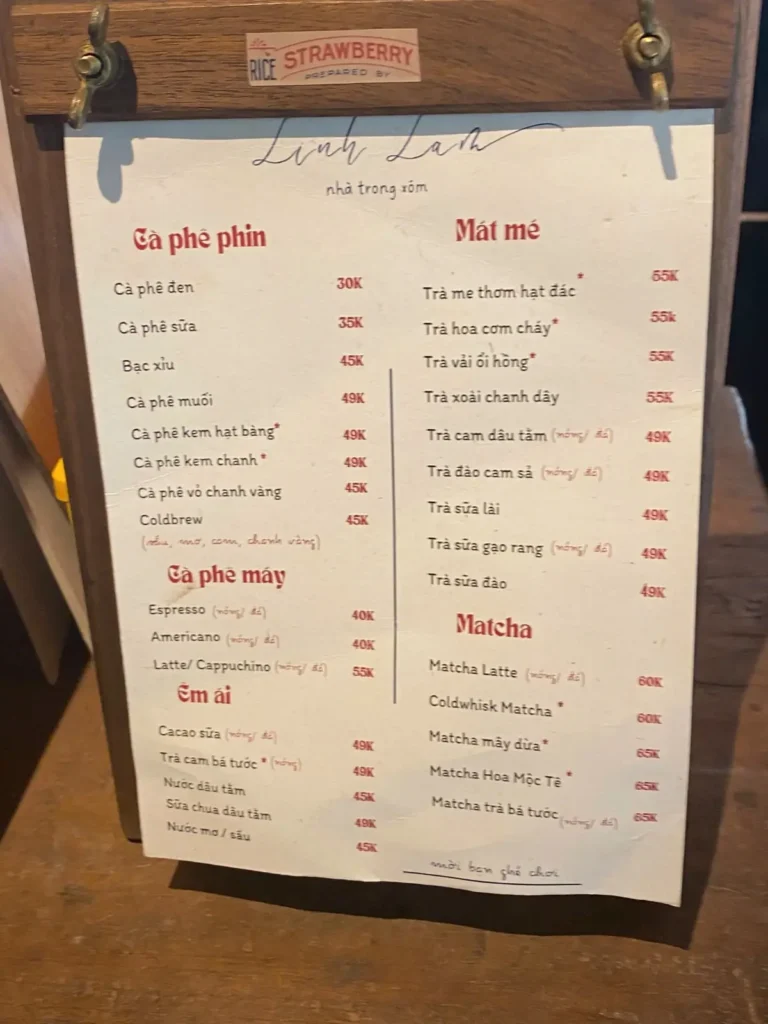 RICE STRAWBERRY
PREPARED BY
Linh Lam
nhà trong xóm
Cà phê phin
Cà phê đen 30K
Cà phê sữa 35K
Bạc xỉu 45K
Cà phê muối 49K
Cà phê kem hạt bàng* 49K
Cà phê kem chanh * 49K
Cà phê vỏ chanh vàng 45K
Coldbrew 45K
(sấu, mơ, cam, chanh vàng)
Cà phê máy
Espresso (nóng/ đá) 40K
Americano (nóng/ đá) 40K
Latte/ Cappuchino (nóng/ đá) 55K
Êm ái
Cacao sữa (nóng/ đá) 49K
Trà cam bá tước * (nóng) 49K
Nước dâu tằm 45K
Sữa chua dâu tằm 49K
Nước mơ / sấu 45K
Mát mẻ
Trà me thơm hạt đác * 55K
Trà hoa cơm cháy* 55k
Trà vải ổi hồng* 55K
Trà xoài chanh dây 55K
Trà cam dâu tằm (nóng/ đá) 49K
Trà đào cam sả (nóng/ đá) 49K
Trà sữa lài 49K
Trà sữa gạo rang (nóng/ đá) 49K
Trà sữa đào 49K
Matcha
Matcha Latte (nóng/ đá) 60K
Coldwhisk Matcha * 60K
Matcha mây dừa* 65K
Matcha Hoa Mộc Tê * 65K
Matcha trà bá tước (nóng/ đá) 65K
mời bạn ghé chơi